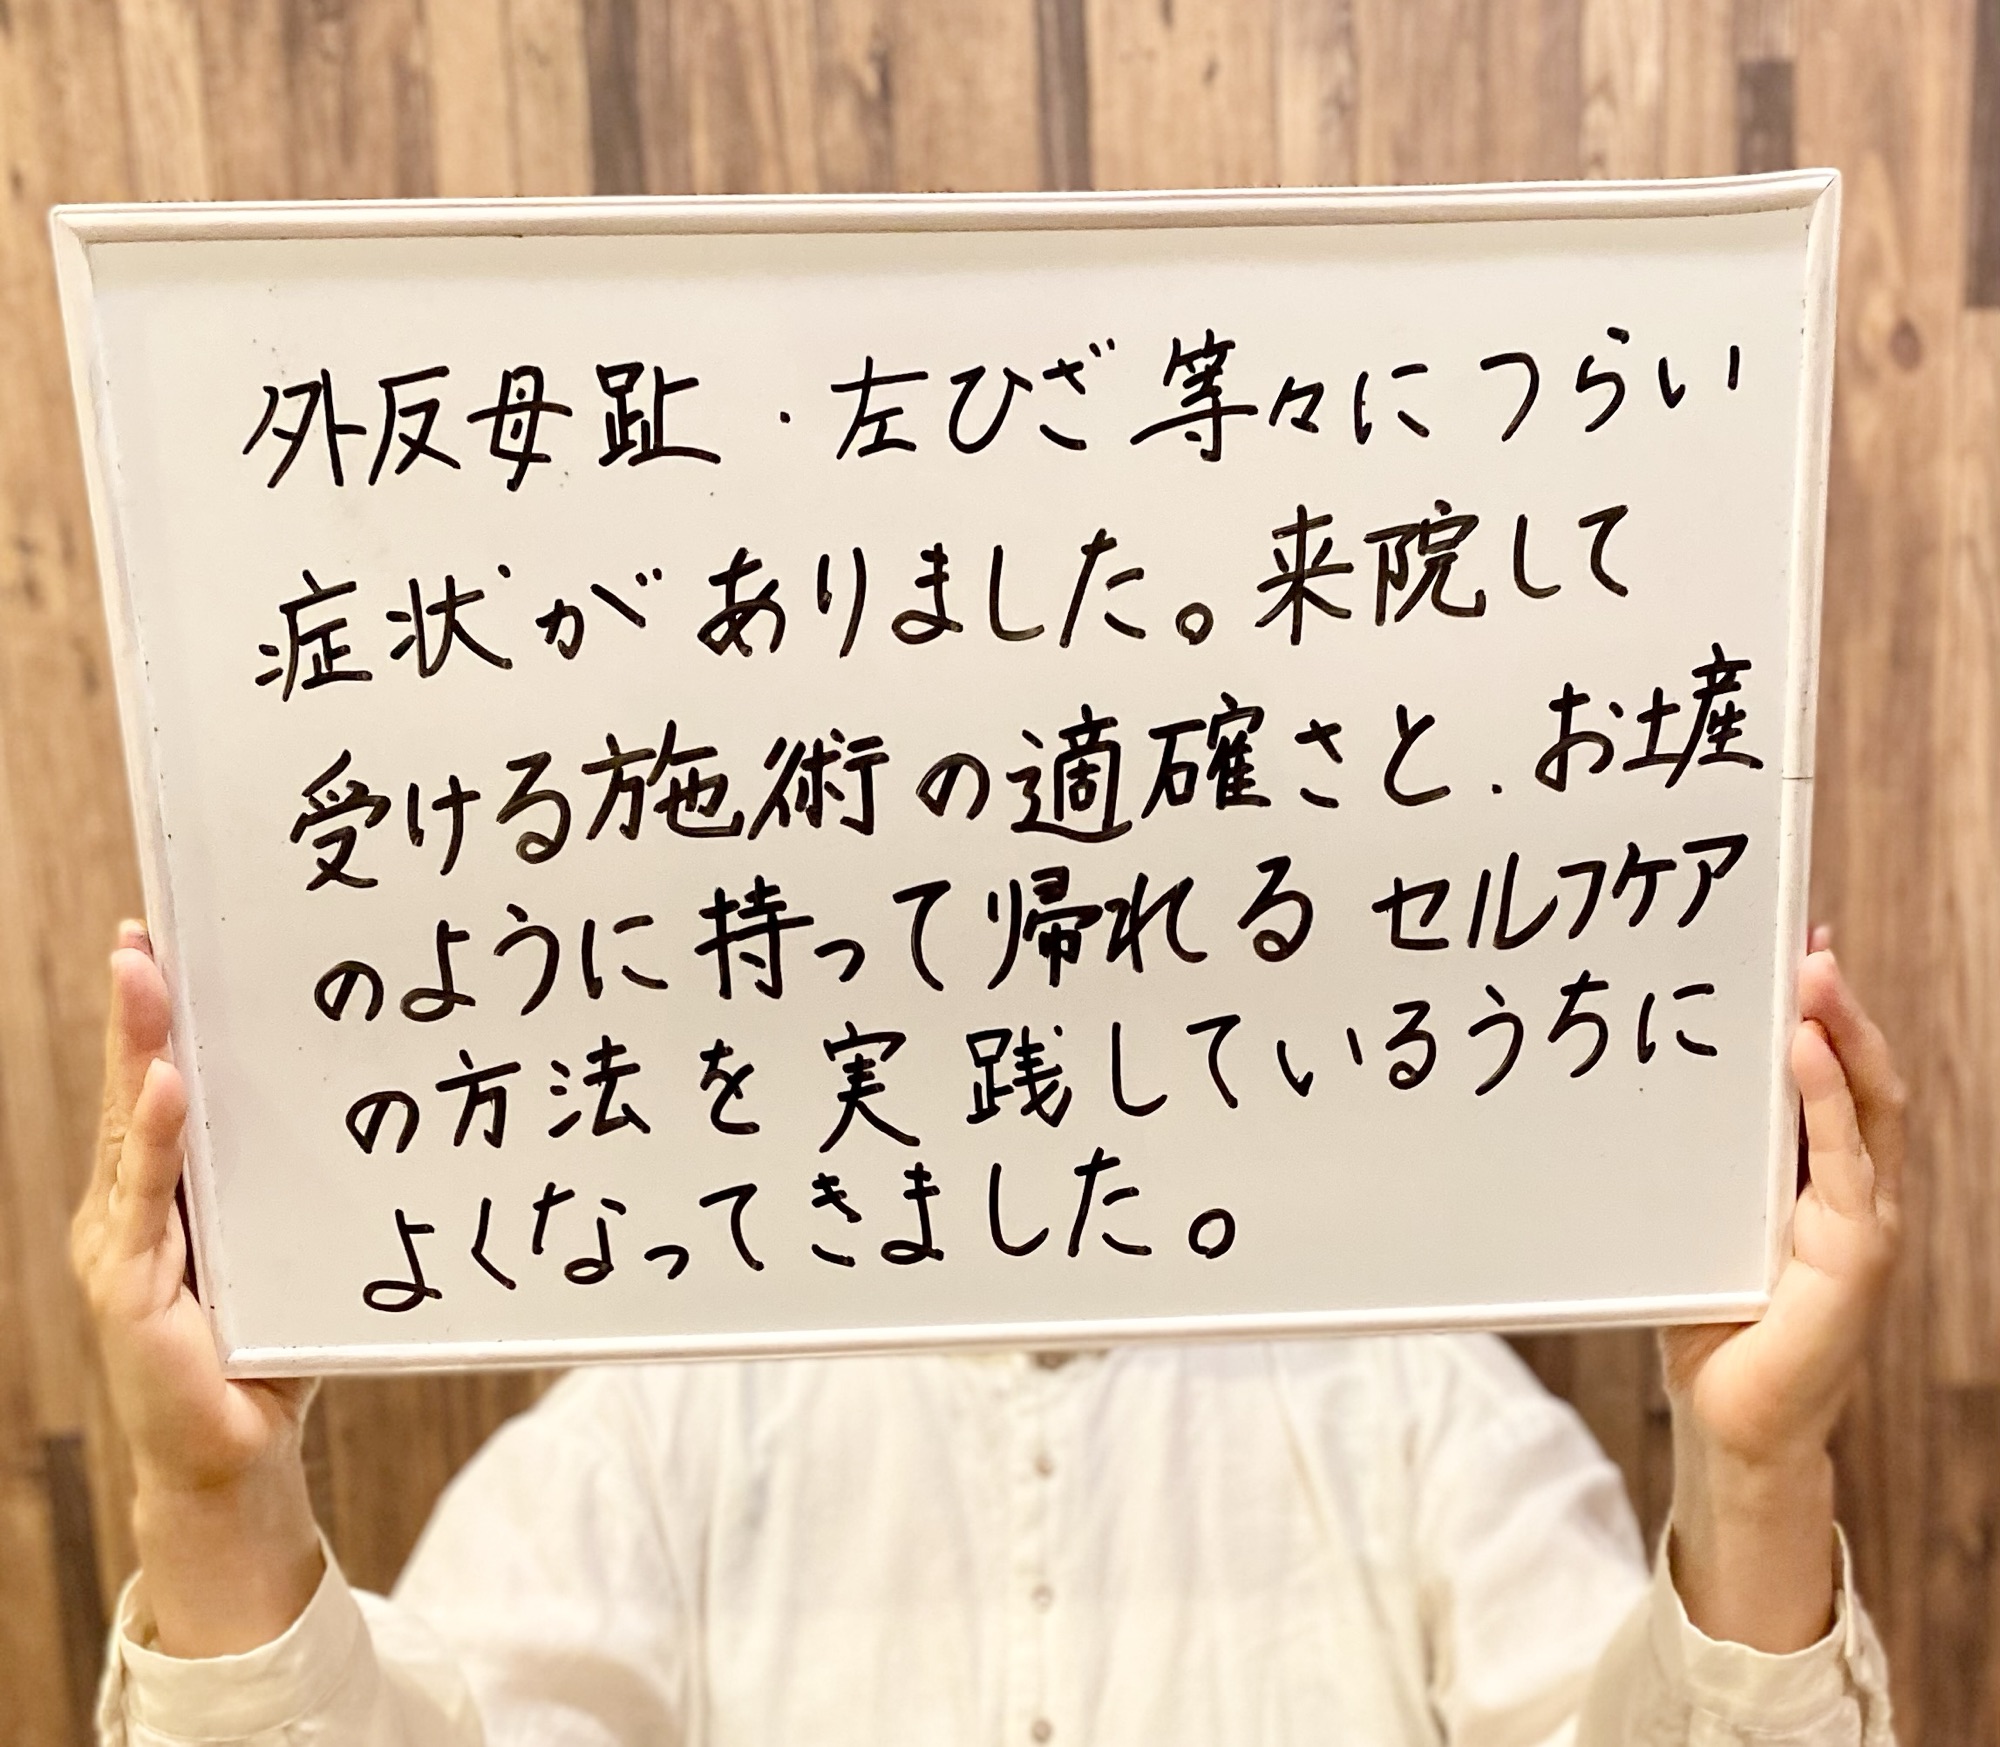 外反母趾・左ひざ等々につらい
症状がありました。来院して
受ける施術の適確さと、お土産
のように持って帰れるセルフケア
の方法を実践しているうちに
よくなってきました。